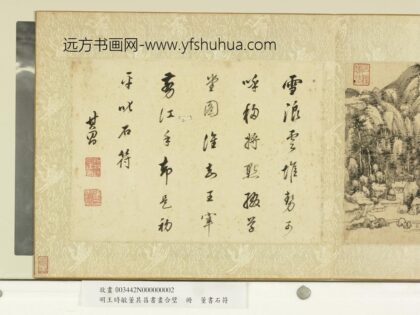 远方书画网-www.yfshuhua.com
雪浪雲堆勢可
呼移將點綴草
堂圖誰知王宰
江手却是初
平叱石符
其昌
故畫 003442N000000002
明王時敏董其昌書畫合璧 冊 董書石符